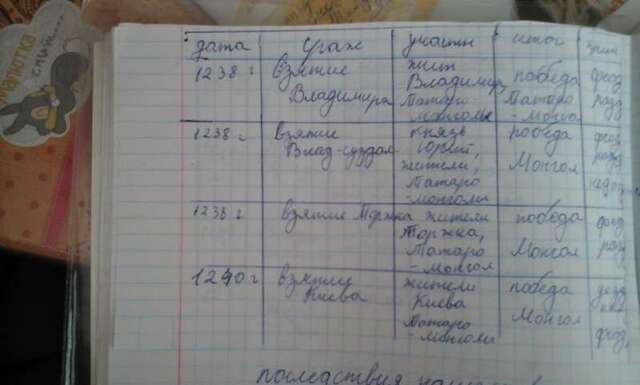 дата сраж участн итог
1238 г Взятие жит победа феод
Владимира Владимир, Татаро разд
Татаро - монгол
монголы
1238 г взятие князь победа феод
Влад-суздал Юрий, Монгол разд
жители,
Татаро
- монголы
1238 г взятие Торжка жители победа феод
Торжка, Монгол разд
Татаро
- Монгол
1240 г взятие жители победа
Киева Киева Монгол
Татаро феод,
- Монголы
последствия